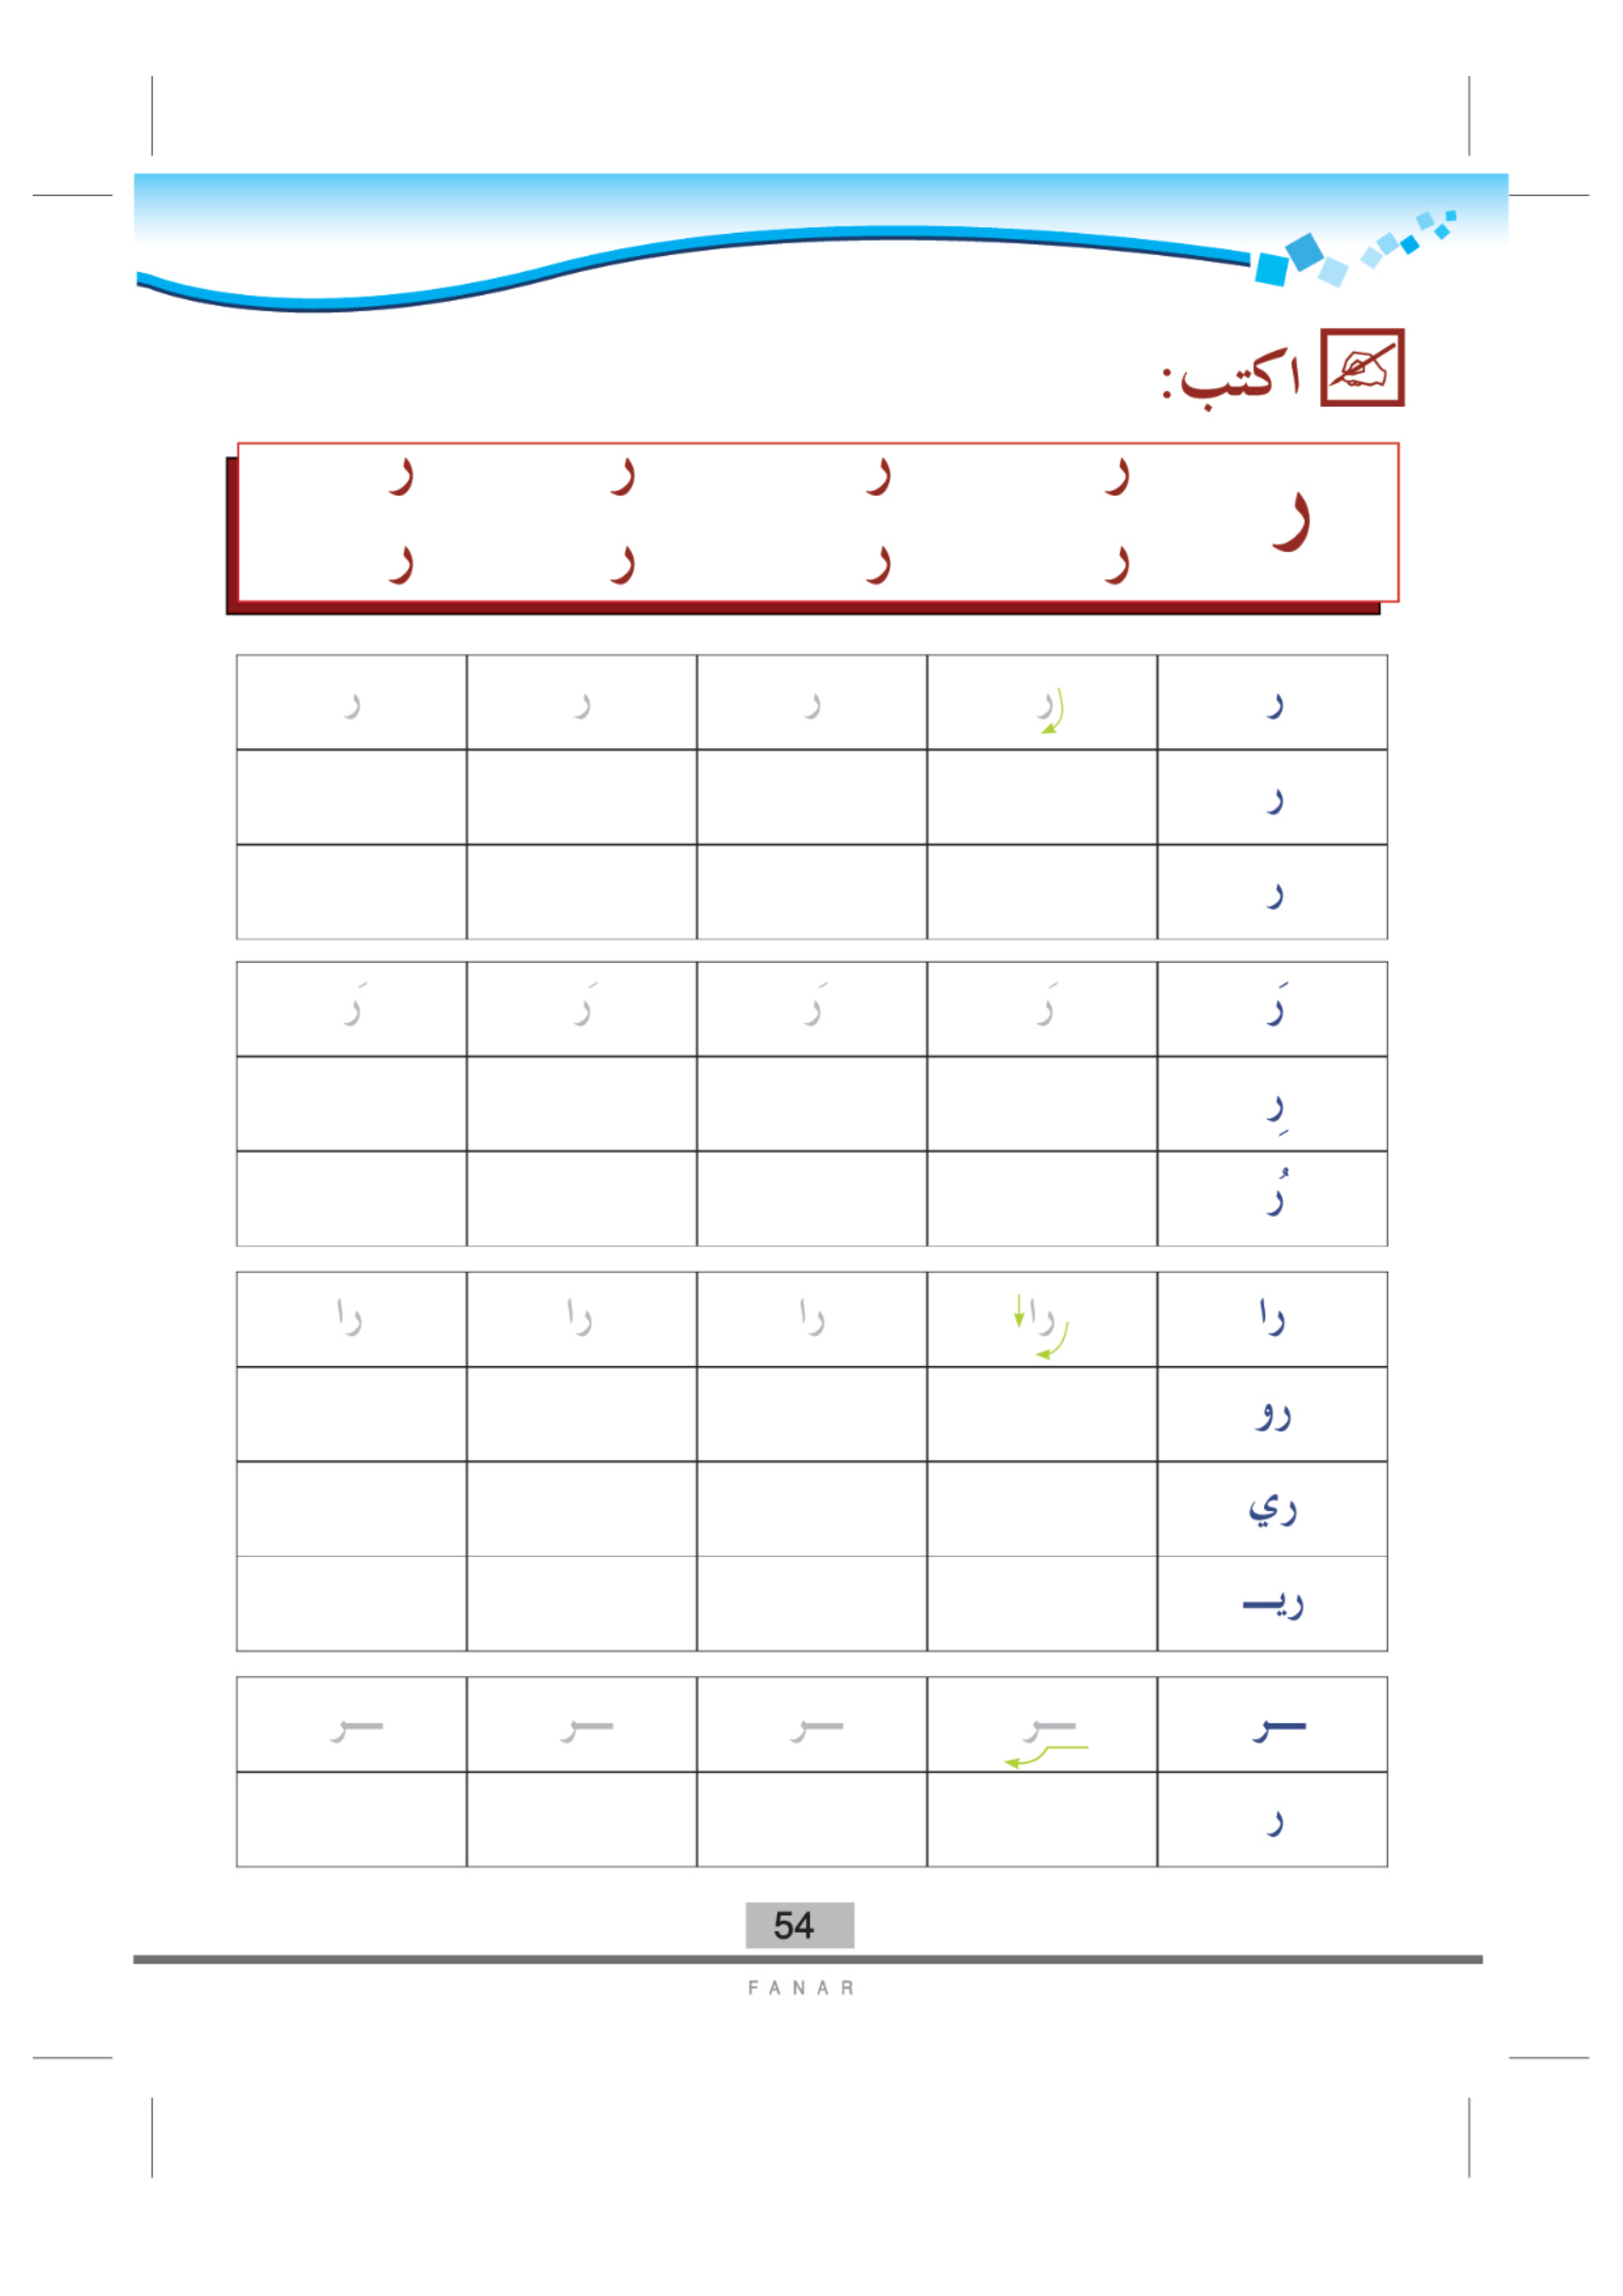 اكتب:
ر ر ر ر ر
ر ر ر ر
ر ر ر ر ر
ر
ر
رَ رَ رَ رَ رَ
رِ
رُ
را را را را را
رو
ري
ريـــ
ـــر ـــر ـــر ـــر ـــر
ر
54
FANAR